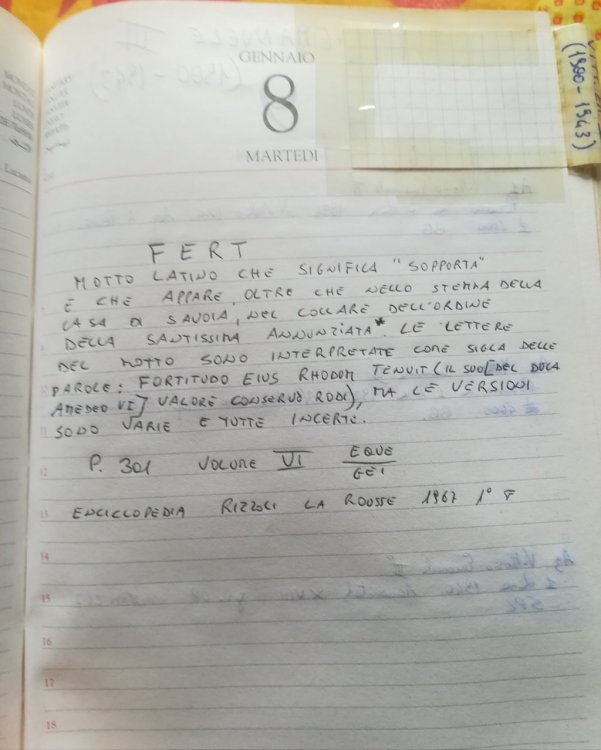 GENNAIO
8
MARTEDI
(1900-1943)
FERT
MOTTO LATINO CHE SIGNIFICA "SOPPORTA"
E CHE APPARE, OLTRE CHE NELLO STEMMA DELLA
CASA DI SAVOIA, NEL COLLARE DELL'ORDINE
DELLA SANTISSIMA ANNUNZIATA*. LE LETTERE
DEL MOTTO SONO INTERPRETATE COME SIGLA DELLE
PAROLE: FORTITUDO EIUS RHODUM TENUIT (IL SUO [DEL DUCA
AMEDEO VI] VALORE CONSERVÒ RODI), MA LE VERSIONI
SONO VARIE E TUTTE INCERTE.
P. 301 VOLUME VI EQUE
GEI
ENCICLOPEDIA RIZZOLI LA ROUSSE 1967 1°
12
13
14
15
16
17
18